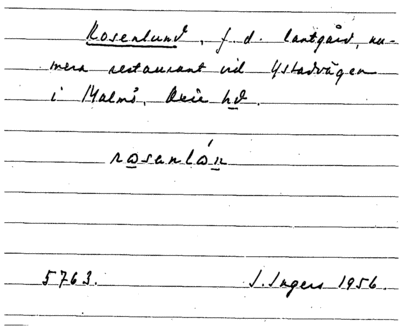 Rosenlund, f. d. lantgård, nu-
mera restaurant vid Ystadvägen
i Malmö, Oxie hd.
rosanlón
5763.
I. Ingers 1956.